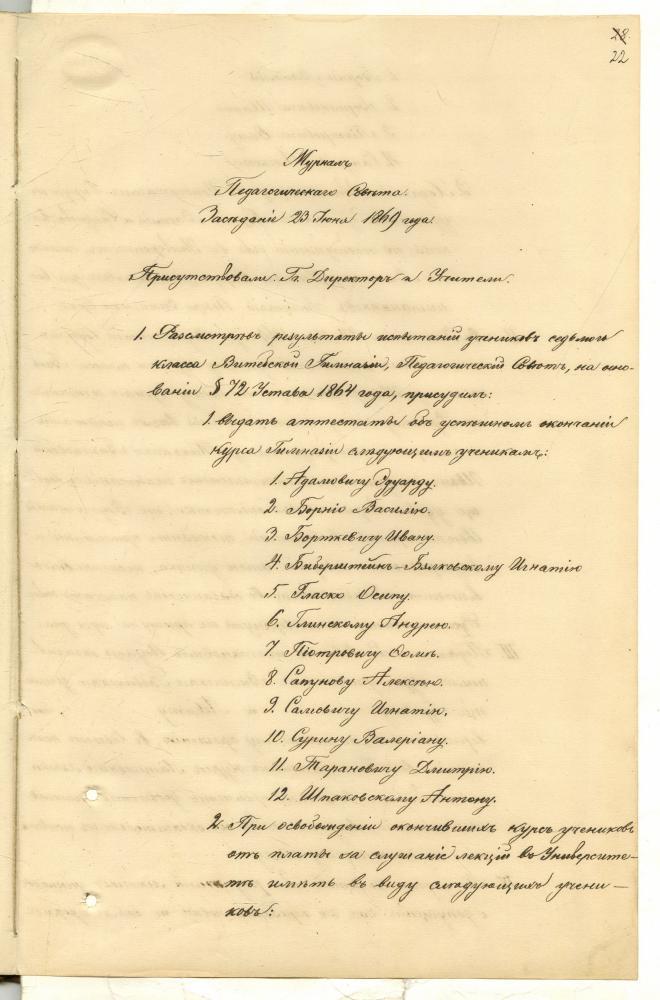 28
22
Журналъ
Педагогическаго Совѣта.
Засѣданіе 23 Іюня 1869 года.
Присутствовали: Гг. Директоръ и Учители.
1. Разсмотрѣвъ результаты испытаній учениковъ седьмого
класса Витебской Гимназіи, Педагогическій Совѣтъ, на осно-
ваніи § 72 Устава 1864 года, присудилъ:
1. выдать аттестаты объ успѣшномъ окончаніи
курса Гимназіи слѣдующимъ ученикамъ:
1. Адамовичу Эдуарду.
2. Борніо Василію.
3. Борткевичу Ивану.
4. Биберштейнъ-Бялковскому Игнатію
5. Гласко Осипу.
6. Глинскому Андрею.
7. Піотровичу Ѳомѣ.
8. Сапунову Алексѣю.
9. Самовичу Игнатію.
10. Сурину Валеріану.
11. Тарановичу Дмитрію.
12. Шпаковскому Антону.
2. При освобожденіи окончившихъ курсъ учениковъ
отъ платы за слушаніе лекцій въ Университе-
тѣ имѣть въ виду слѣдующихъ учени-
ковъ: